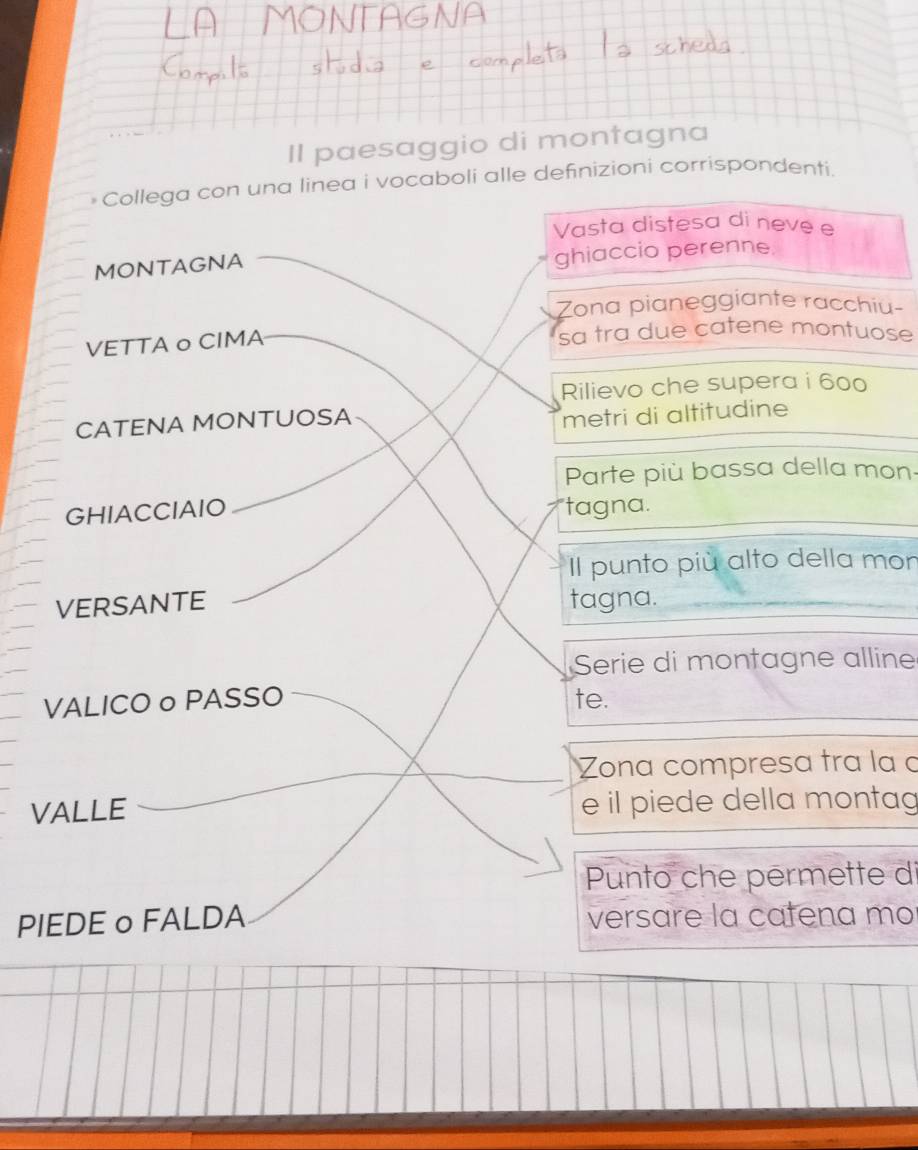 LA MONTAGNA
Compilo studio e completo la scheda.
Il paesaggio di montagna
Collega con una linea i vocaboli alle definizioni corrispondenti.
MONTAGNA
VETTA o CIMA
CATENA MONTUOSA
GHIACCIAIO
VERSANTE
VALICO o PASSO
VALLE
PIEDE o FALDA
Vasta distesa di neve e
ghiaccio perenne.
Zona pianeggiante racchiu-
sa tra due catene montuose
Rilievo che supera i 600
metri di altitudine
Parte più bassa della mon-
tagna.
Il punto più alto della mon
tagna.
Serie di montagne alline
te.
Zona compresa tra la c
e il piede della montag
Punto che permette di
versare la catena mo